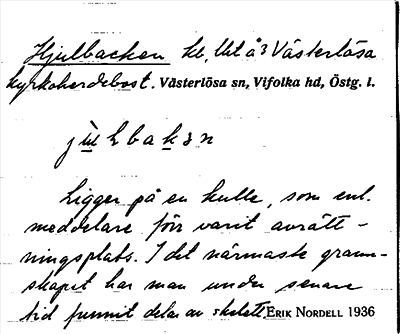 Hjulbacken kl, Ubt å 3 Västerlösa
kyrkoherdebost. Västerlösa sn, Vifolka hd, Östg. l.
Ligger på en kulle, som enl.
meddelare förr varit avrätt-
ningsplats. I det närmaste grann-
skapet har man under senare
tid funnit delar av skelett. ERIK NORDELL 1936